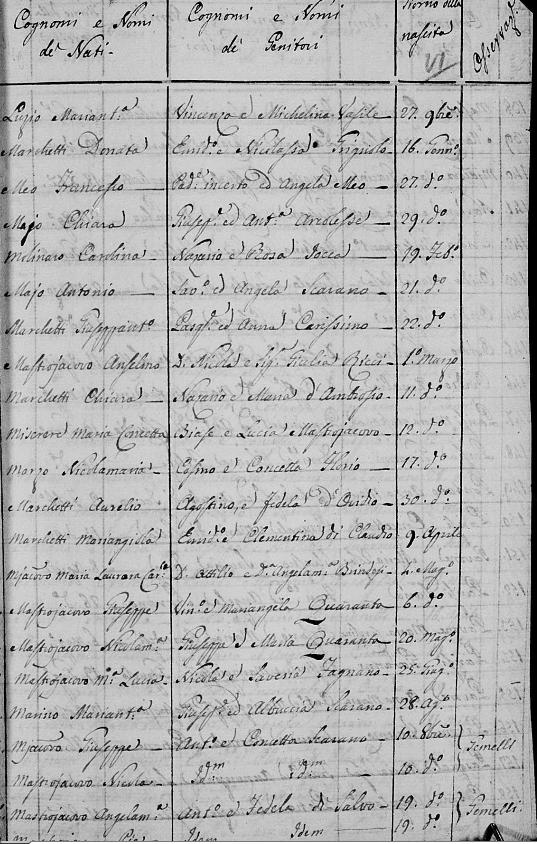 Cognomi e Nomi Cognomi e Nomi Giorno della
de' Nati- de' Genitori nascita Osservaz.
VI
Lupo Mariant.a Vincenzo e Michelina Vasile 27. 9bre
Marchetti Donata Emid.o e Nicolessa 16. Genn.o
Meo Francesco Pad.e incerto ed Angela Meo 27. d.o
Majo Chiara Giusep.e ed Ant.a 29. d.o
Molinaro Carolina Nazario e Rosa Jocca 19. Feb.o
Majo Antonio Sav.o ed Angela Scarano 21. d.o
Marchetti Giuseppant.o Pasq.e ed Anna Carissimo 22. d.o
Mastrojacovo Anselmo D. Nicola e Sig.a Giulia Ricci 1.o Marzo
Marchetti Chiara Nazario e Maria d'Ambrosio 11. d.o
Miserere Maria Concetta Biase e Lucia Mastrojacovo 12. d.o
Marzo Nicolamaria Cosmo e Concetta Iorio 17. d.o
Marchetti Aurelio Agostino, e Fedela d'Ovidio 30. d.o
Marchetti Mariangiola Emid.o e Clementina di Claudio 9. Aprile
Mjacovo Maria Laurara D. Attilio e D.a Angelam.a Brindesi Mag.o
Mastrojacovo Giuseppe Vin.o e Mariangela Quaranta 6. d.o
Mastrojacovo Nicolam.a Giuseppe e Maria Quaranta 20. Mag.o
Mastrojacovo M.a Lucia Nicola e Saveria Fagnano 25. Giug.o
Marino Mariant.a Giusep.e ed Albuccia Scarano 28. Ag.o
Mjacovo Giuseppe Ant.o e Concetta Scarano 10. 8bre } Gemelli
Mastrojacovo Nicola Id.m Id.m 10. d.o
Mastrojacovo Angelam.a Ant.o e Fedela di Salvo 19. d.o } Gemelli
Idem Idem 19. d.o